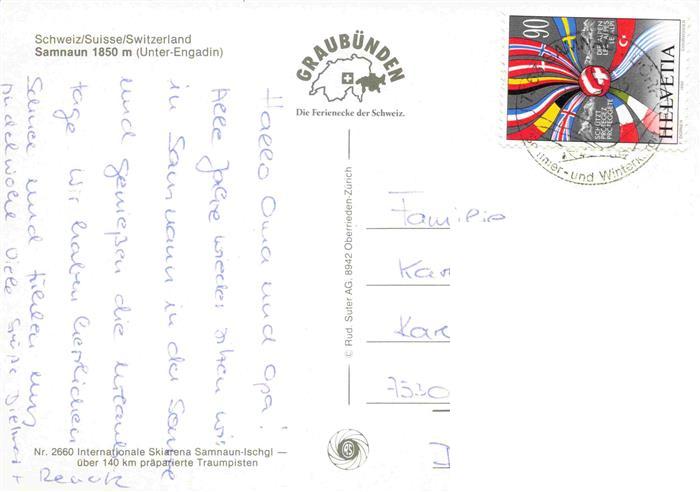 Schweiz/Suisse/Switzerland
Samnaun 1850 m (Unter-Engadin)
GRAUBÜNDEN
Die Ferienecke der Schweiz.
Hallo Oma und Opa!
Alle Jahre wieder sitzen wir
in Samnaun in der Sonne
und genießen die Urlaubs
tage. Wir haben herrlichen
Schnee und fühlen uns
pudelwohl. Viele Grüße Dietmar
+ Renate
Nr. 2660 Internationale Skiarena Samnaun-Ischgl —
über 140 km präparierte Traumpisten
© Rud. Suter AG, 8942 Oberrieden-Zürich
Familie
Kar
Kare
7530
90
DIE ALPEN
LES ALPES
LE ALPI
SCHÜTZT
PROTÉGEZ
PROTEGGETE
HELVETIA
mer- und Winterk